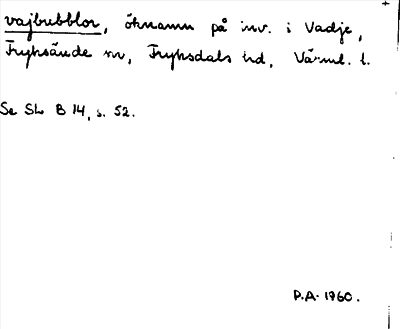 vajbubblor, öknamn på inv. i Vadje,
Fryksände sn, Fryksdals hd, Värml. l.
Se SL B 14, s. 52.
P.A. 1960.